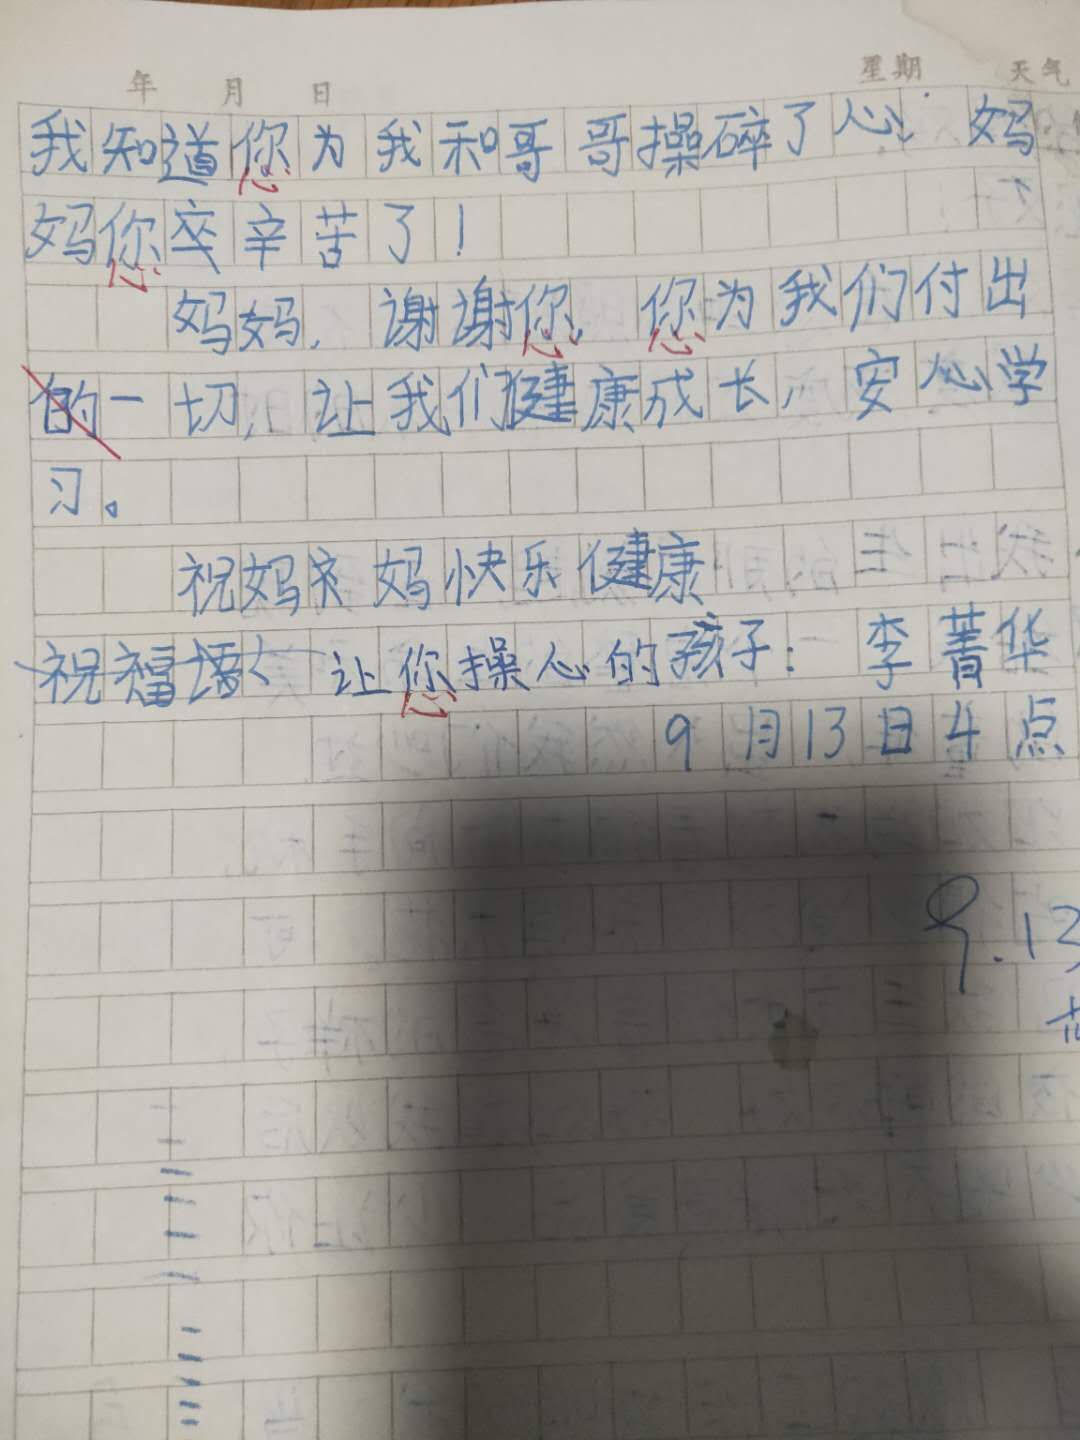 年 月 日 星期 天气
我知道您为我和哥哥操碎了心! 妈
妈您卒辛苦了!
妈妈, 谢谢您, 您为我们付出
的一切, 让我们健康成长, 安心学
习。
祝妈衤妈快乐健康
祝福语 让您操心的孩子: 李菁华
9月13日4点
9.13